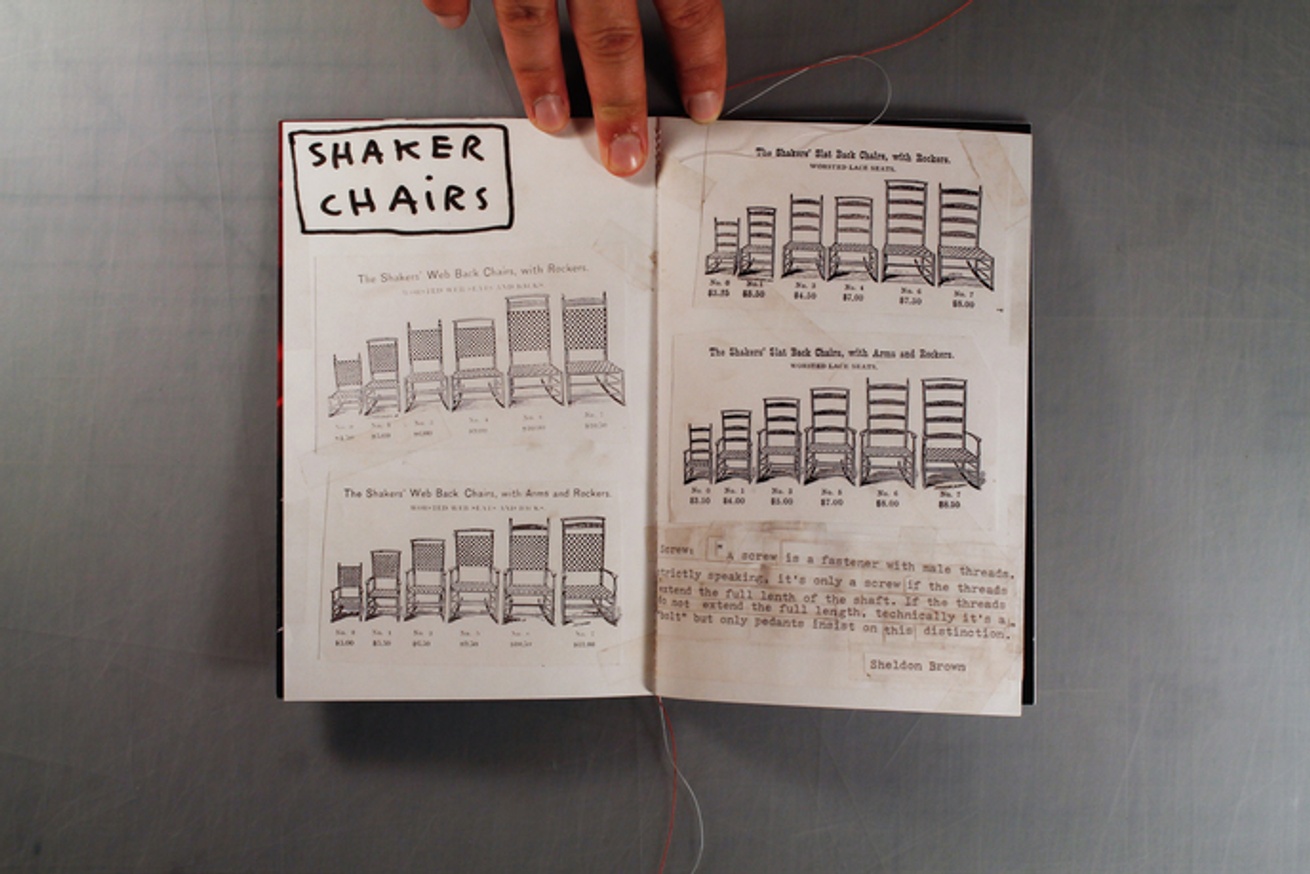 SHAKER
CHAIRS
The Shakers' Web Back Chairs, with Rockers.
WORSTED WEB SEATS AND BACKS.
The Shakers' Web Back Chairs, with Arms and Rockers.
WORSTED WEB SEATS AND BACKS.
The Shakers' Slat Back Chairs, with Rockers.
WORSTED LACE SEATS.
No. 0 No. 1 No. 3 No. 4 No. 6 No. 7
$3.50 $4.50 $7.00 $7.50 $8.00
The Shakers' Slat Back Chairs, with Arms and Rockers.
WORSTED LACE SEATS.
No. 0 No. 1 No. 3 No. 5 No. 6 No. 7
$3.50 $4.00 $5.00 $7.00 $8.00 $8.50
Screw: "A screw is a fastener with male threads.
trictly speaking, it's only a screw if the threads
extend the full lenth of the shaft. If the threads
do not extend the full length, technically it's a
"bolt" but only pedants insist on this distinction.
Sheldon Brown